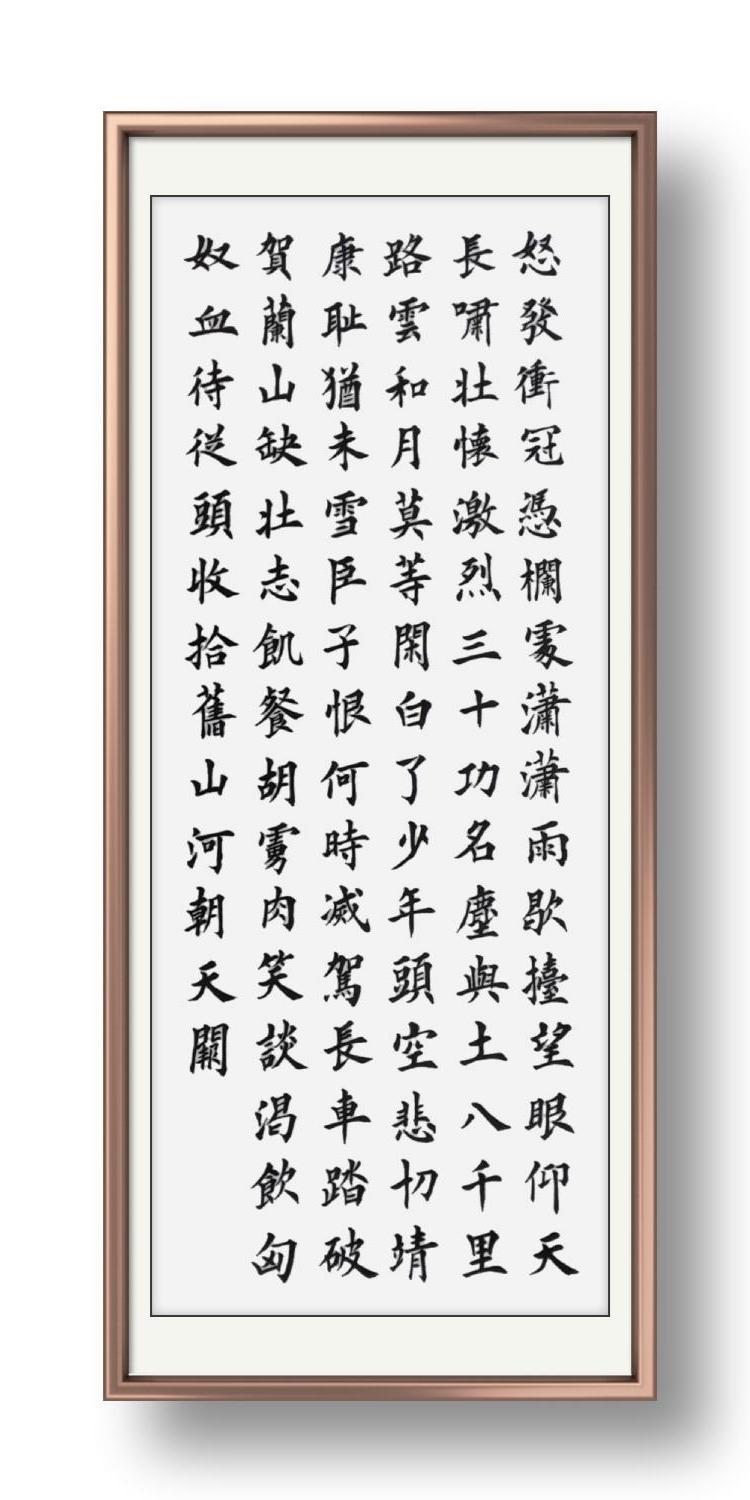 怒發衝冠憑欄處瀟瀟雨歇擡望眼仰天
長嘯壯懷激烈三十功名塵與土八千里
路雲和月莫等閑白了少年頭空悲切靖
康耻猶未雪臣子恨何時滅駕長車踏破
賀蘭山缺壯志飢餐胡虜肉笑談渴飲匈
奴血待従頭收拾舊山河朝天闕